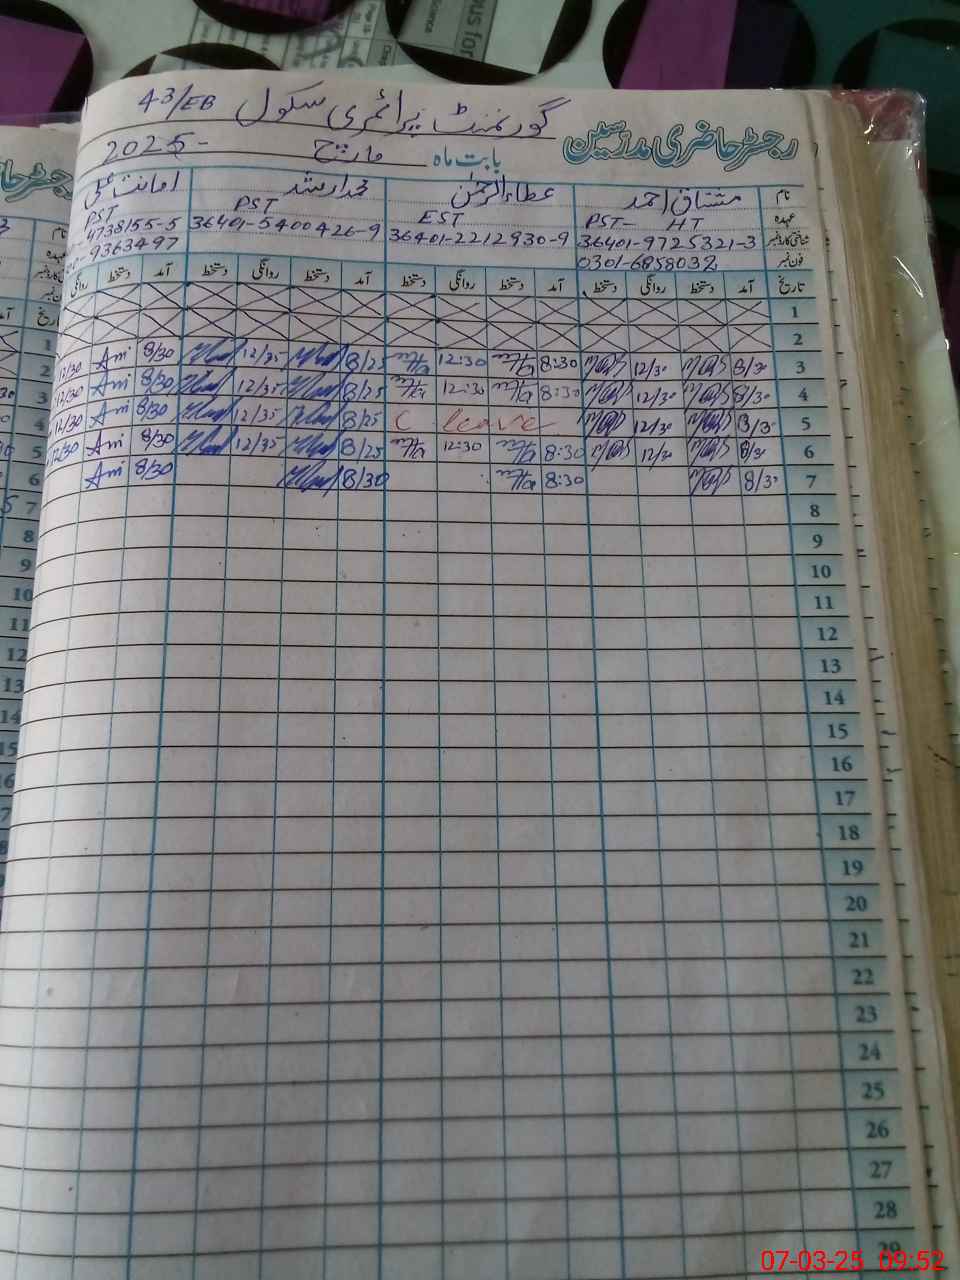 گورنمنٹ پرائمری سکول 43/EB
رجسٹر حاضری مدرسین
بابت ماہ مارچ 2025-
نام مشتاق احمد عطاءالرحمٰن امانت علی
عہدہ PST- HT EST PST PST
شناختی کارڈ نمبر 36401-9725321-3 36401-2212930-9 36401-5400426-9 4738155-5
فون نمبر 0301-6858032 9363497
تاریخ آمد دستخط روانگی دستخط آمد دستخط روانگی دستخط آمد دستخط روانگی دستخط آمد دستخط روانگی
1
2
3 8/30 12/30 8:30 12:30 8/25 12/35 8/30 Am 12/30
4 8/30 12/30 8:30 12:30 8/25 12/35 8/30 Am 12/30
5 8/30 12/30 C leave 8/25 12/35 8/30 Am 12/30
6 8/30 12/30 8:30 12:30 8/25 12/35 8/30 Am 12/30
7 8/30 8:30 8/30 8/30 Am
8
9
10
11
12
13
14
15
16
17
18
19
20
21
22
23
24
25
26
27
28
29
07-03-25 09:52